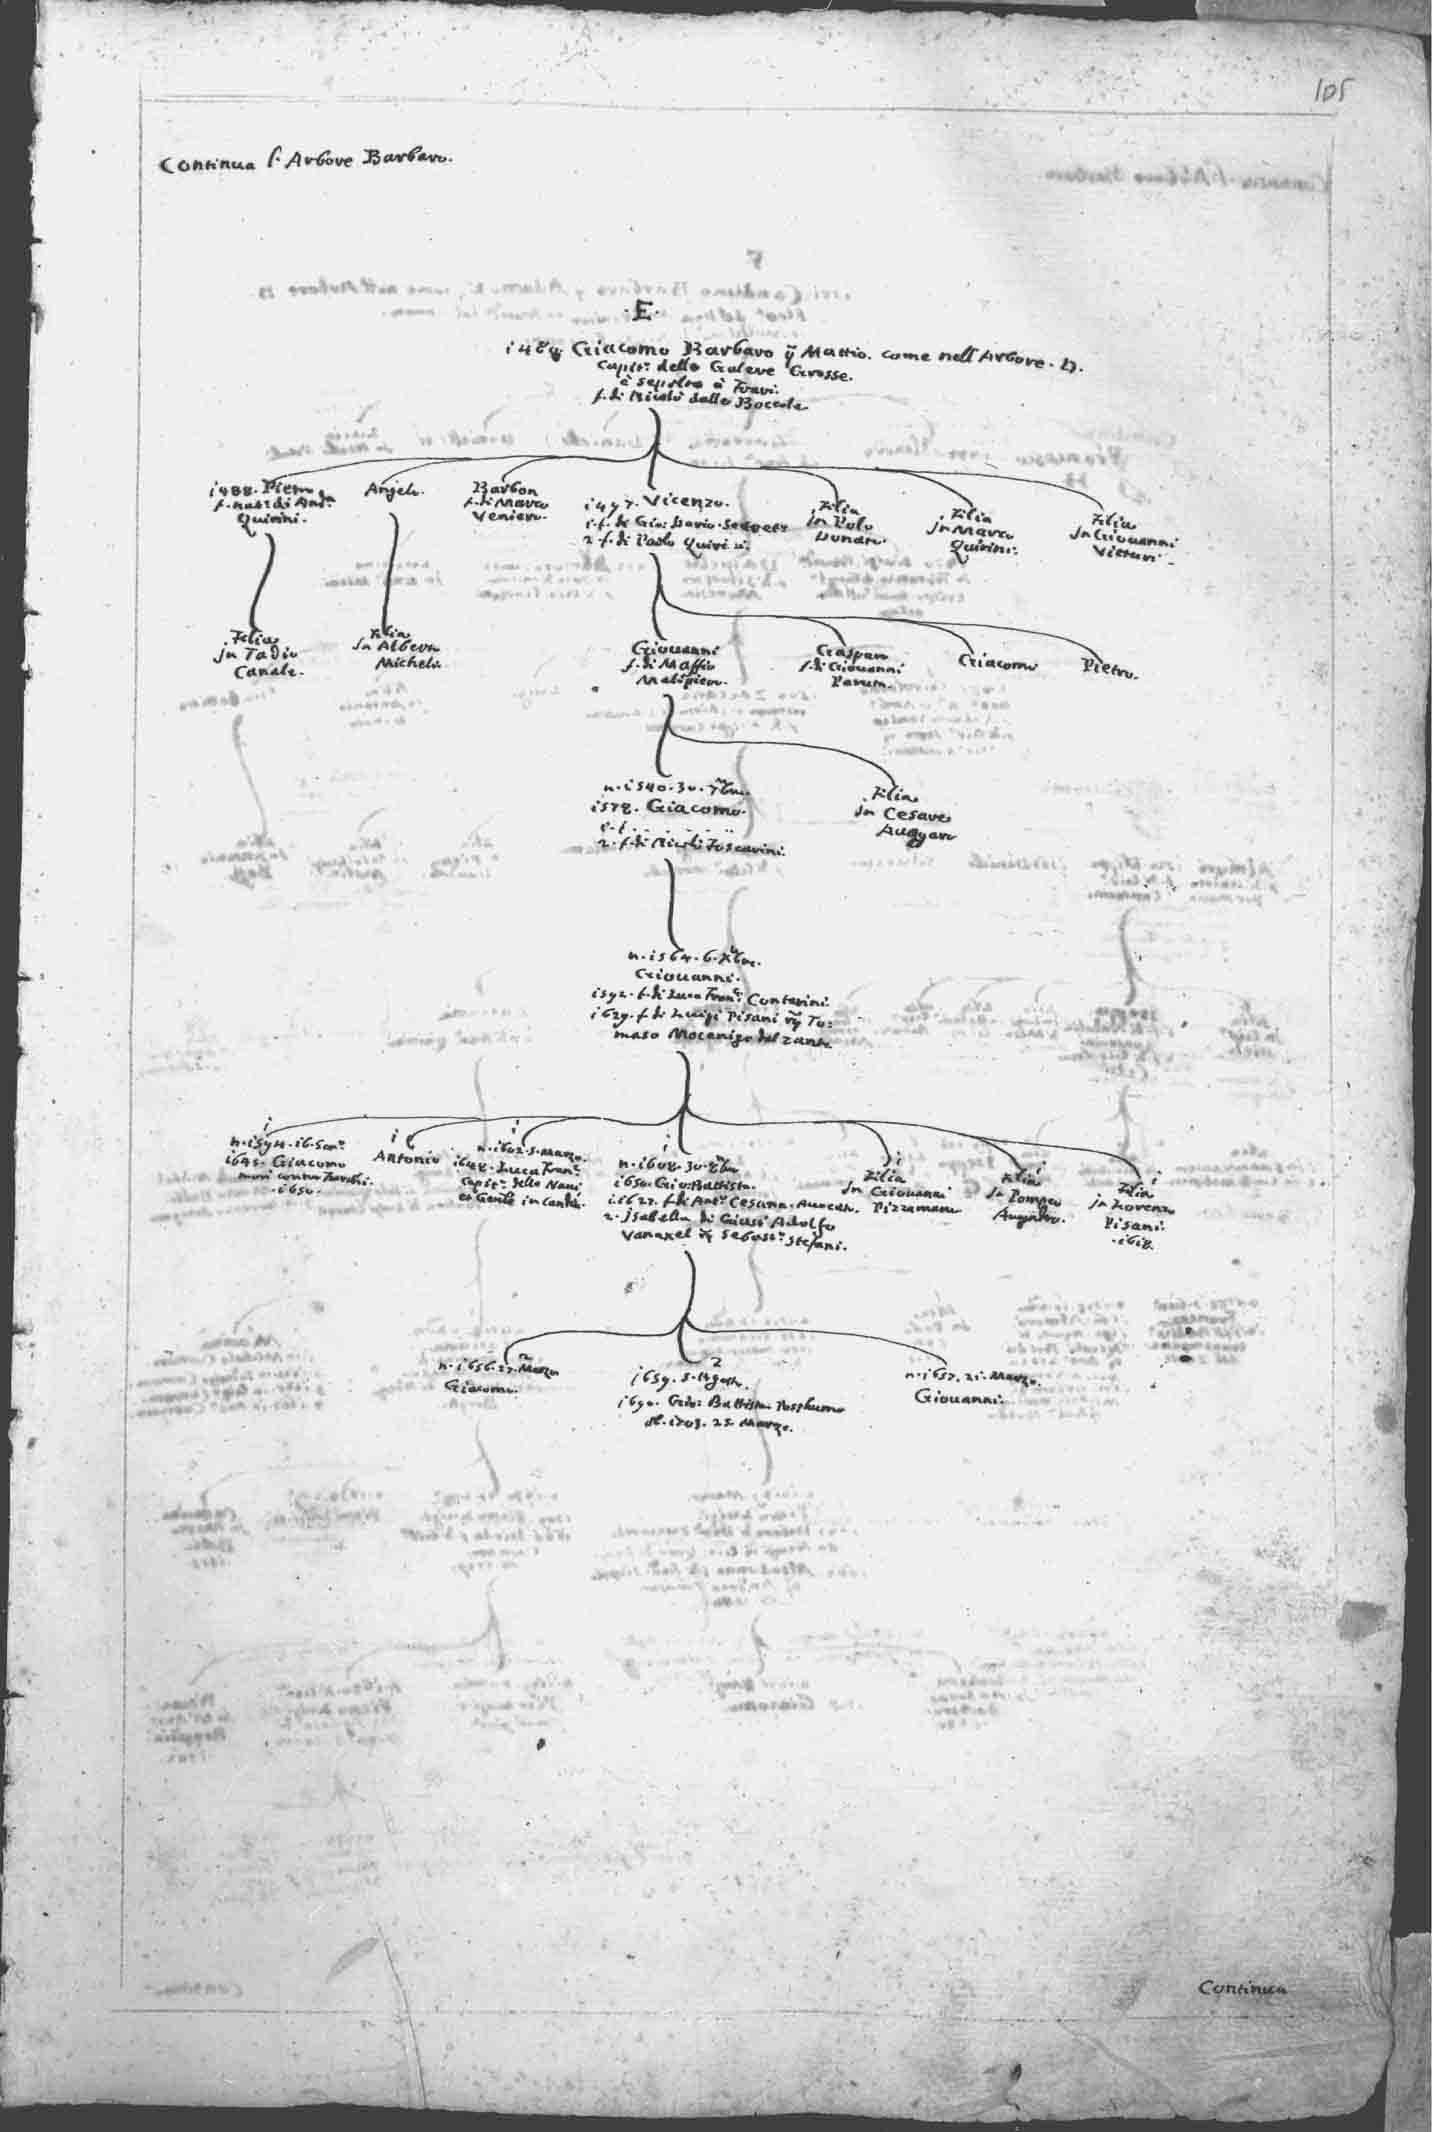 105
Continua l'Arbore Barbaro.
·E·
Giacomo Barbaro q̃ Mattio. come nell'Arbore. D.
Capit.º delle Galere Grosse.
è sepolto à
f. di Nicolò dalle Boccole
1488. Pietro
f. nat: di And.ª
Quirini.
Angelo.
Barbon
f. di Marco
Veniero.
1497. Vicenzo.
1. f. di Gio: Dario. Secret.º
2. f. di Paolo Quirini.
Filia
jn Polo
Donan.
Filia
jn Marco
Quirini.
Filia
jn Giouanni
Vitturi.
Filia
jn Tadio
Canale.
Filia
jn Alberto
Michele.
Giouanni
f. di Maffio
Malipiero.
Gaspare
f. di Giouanni
Giacomo
Pietro.
n. 1540. 30. 7bre.
1578. Giacomo.
1. f. . . . . . .
2. f. di Nicolò Foscarini.
Filia
jn Cesare
n. 1564. 6. Xbre.
Giouanni.
1592. f. di Luca Fran.º Contarini
1629. f. di Luigi Pisani rq̃ To:
maso Mocenigo del zante
1
n. 1594. 16.
1645. Giacomo
morì contro Turchi.
1650.
1
Antonio
1
n. 1602. 5. Marzo.
1648. Luca Fran.º
Capit.º delle Naui
in Candia.
1
n. 1608. 30.
1650. Gio: Battista.
1. 1627. f. di Ant.º Cesana. Auocato.
2. Jsabella di Giust' Adolfo
Vanaxel rq̃ Sebast.º Stefani.
1
Filia
jn Giouanni
Pizzamano
1
Filia
jn Pompeo
1
Filia
jn Lorenzo
Pisani.
1618.
2
n. 1656. 27. Marzo
Giacomo.
2
1659. 5. Agosto.
1690. Gio: Battista Posthumo
1703. 25. Marzo.
n. 1657. 21. Marzo.
Giouanni.
Continua